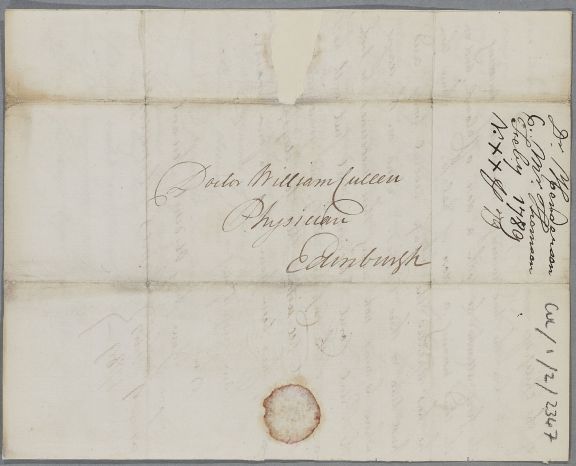 Doctor William Cullen
Physician
Edinburgh
Dr Henderson
C. Mrs Thomson
1789
Cul/1/2/2347